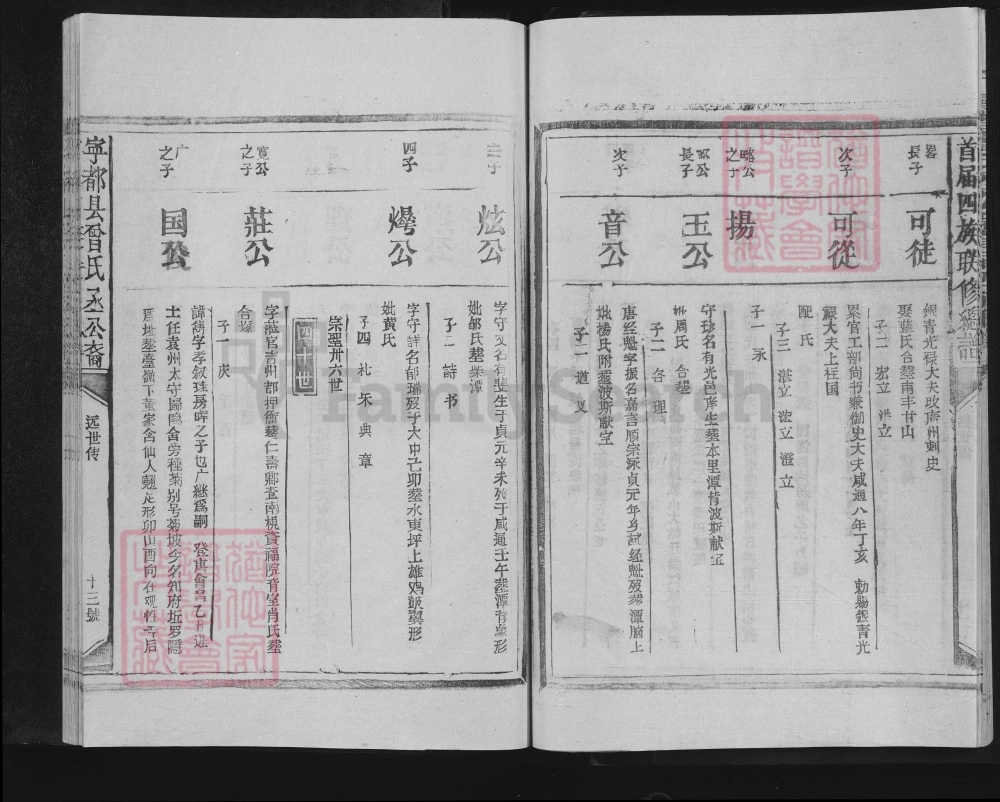 首届四族联修總譜
畧長子
可徒
銀青光禄大夫政南州刺史
娶藍氏合塟南丰甘山
子二 宏立 洪立
次子
可從
累官工部尚书兼御史大夫咸通八年丁亥 勅赐銀青光
禄大夫上柱国
配 氏
子三 湛立 泫立 澄立
略公之子
揚
子一 永
公長子
王公
守珍名有光邑庠生塟本里潭背波斯献宝
妣周氏 合塟
子二 各 理
次子
音公
唐经魁字振名嘉言順宗泳貞元年乡試经魁殁塟潭腦上
妣楊氏附塟波斯献宝
子一 道 义
三子
炫公
字守文名有斐生于貞元辛未殁于咸通壬午塟潭背象形
妣郭氏塟柴潭
子二 詩 书
四子
爗公
字守詳名郁瑞殁于大中己卯塟水東坪上雄鸡鼓翼形
妣黄氏
子四 礼 乐 典 章
崇聖卅六世
四十世
寬公之子
莊公
字莊官吉州都押衙塟仁壽卿查南梘資福院背室肖氏塟
合塚
子一 庆
广之子
国公
諱傳字孝叙珪房晖之子也广继爲嗣 登唐會昌乙丑進
士任袁州太守歸隐舍旁種菊别号菊坡今名知府坵罗隱
爲地塟臺嶺下董家舍仙人翹足形卯山酉向在观性寺后
宁都县曾氏丞公裔
远世传
十三號